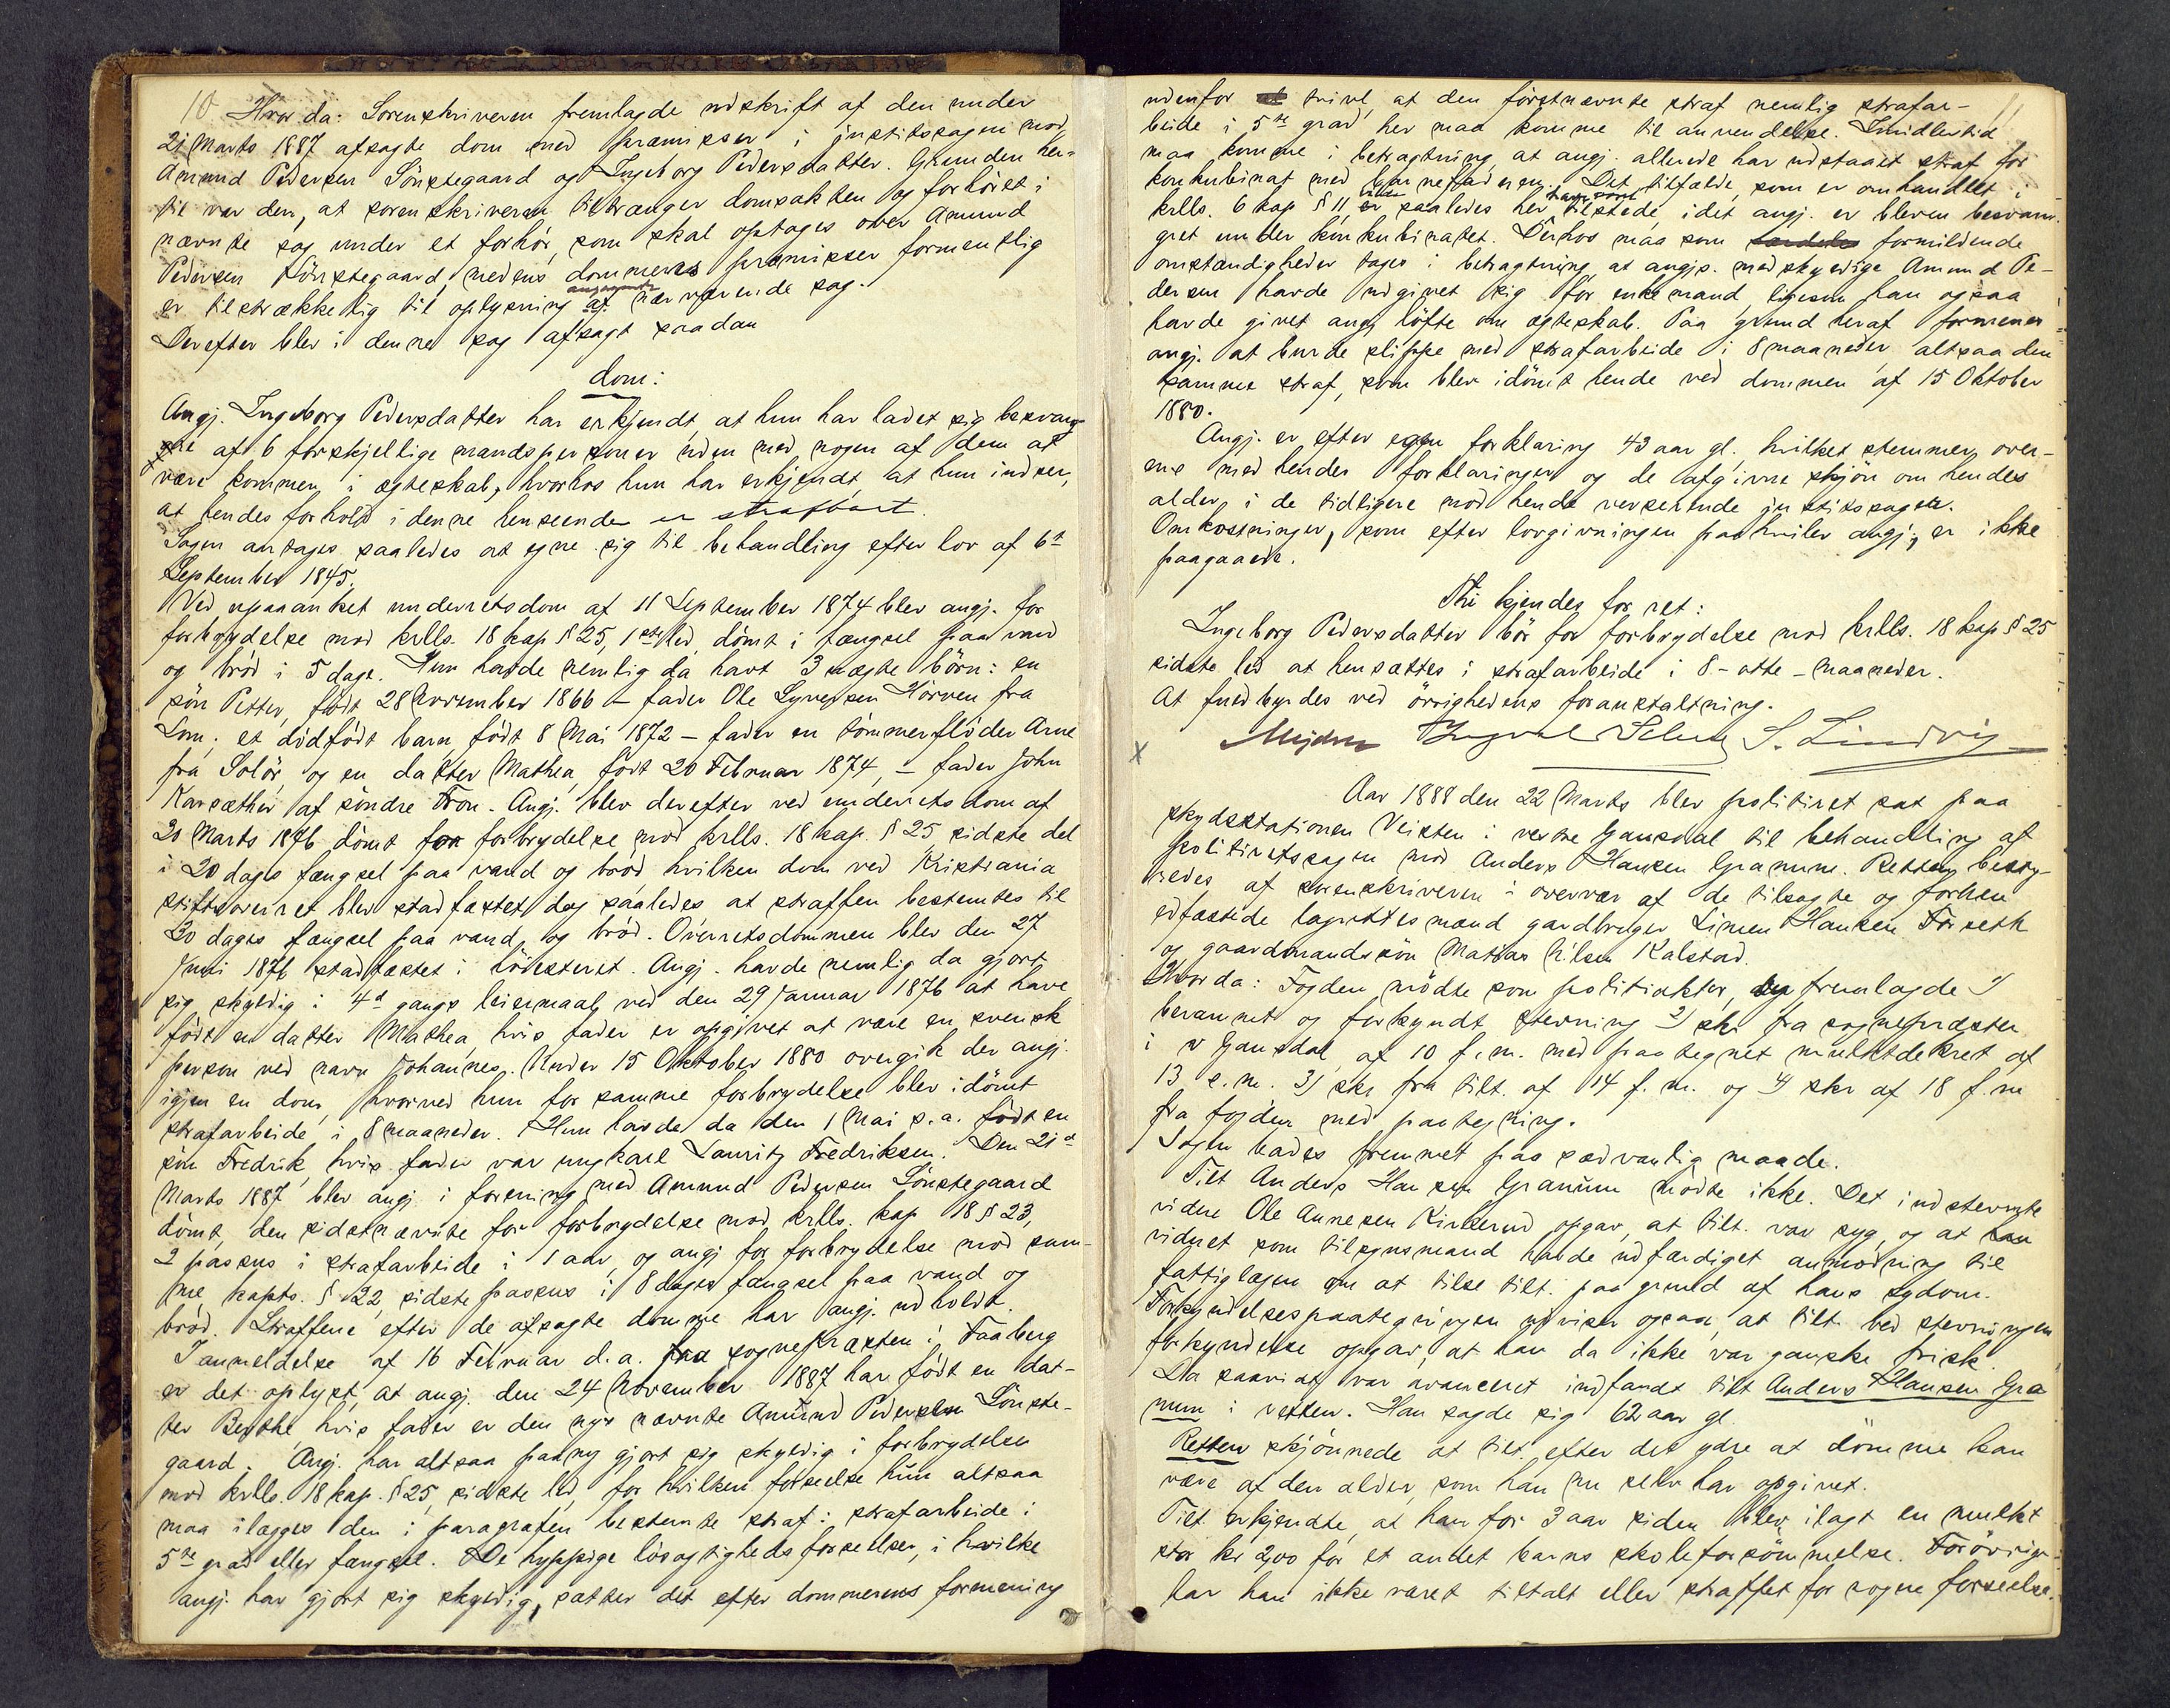 10 Hvor da: Sorenskriveren fremlagde udskrift af den under
21 Marts 1887 afsagte dom med præmisser i justitssagen mod
Amund Pedersen Sönstegaard og Ingeborg Pedersdatter. Grunden her-
til var den, at sorenskriveren tiltrænger domsakten og forhöret i
nævnte sag under et forhör, som skal optages over Amund
Pedersen Sönstegaard, medens dommens præmisser formentlig
er tilstrækkelig til oplysning af angaaende nærværende sag.
Derefter blev i denne sag afsagt saadan
dom:
Angj. Ingeborg Pedersdatter har erkjendt, at hun har ladet sig besvang-
re af 6 forskjellige mandspersoner uden med nogen af dem at
være kommen i ægteskab, hvorhos hun har erkjendt, at hun indser,
at hendes forhold i denne henseende er strafbart.
Sagen antages saaledes at egne sig til behandling efter lov af 6te
September 1845.
Ved upaaanket underretsdom af 11 September 1874 blev angj. for
forbrydelse mod krlls. 18 kap § 25, 1ste led, dömt i fængsel paa vand
og bröd i 5 dage. Hun havde nemlig da havt 3 uægte börn: en
sön Petter, födt 28 November 1866 – fader Ole Syversen Hörven fra
Lom; et dödfödt barn, födt 8 Mai 1872 – fader en tömmerflöder Arne
fra Solör, og en datter Mathea, födt 20 Februar 1874, – fader John
Karsæther af söndre Fron. Angj. blev derefter ved underretsdom af
30 Marts 1876 dömt for forbrydelse mod krlls. 18 kap. § 25 sidste del
i 20 dages fængsel paa vand og bröd hvilken dom ved Kristiania
stiftsoverret blev stadfæstet dog saaledes at straffen bestemtes til
30 dages fængsel paa vand og bröd. Overretsdommen blev den 27
Juni 1876 stadfæstet i höiesteret. Angj. havde nemlig da gjort
sig skyldig i 4de gangs leiermaal, ved den 29 Januar 1876 at have
födt en datter Mathea, hvis fader er opgivet at være en svensk
person ved navn Johannes. Under 15 Oktober 1880 overgik der angj.
igjen en dom, hvorved hun for samme forbrydelse blev idömt
strafarbeide i 8 maaneder. Hun havde da den 1 Mai s.a. födt en
sön Fredrik, hvis fader var ungkarl Lauritz Fredriksen. Den 21de
Marts 1887 blev angj. i forening med Amund Pedersen Sönstegaard
dömt, den sidstnævnte for forbrydelse mod krlls. kap 18 § 23,
2 passus i strafarbeide i 1 aar, og angj for forbrydelse mod sam-
me kapts. § 22 sidste passus i 8 dages fængsel paa vand og
bröd. Straffene efter de afsagte domme har angj. udholdt.
I anmeldelse af 16 Februar d.a. fra sognepræsten i Faaberg
er det oplyst, at angj. den 24 November 1887 har födt en dat-
ter Berthe, hvis fader er den nys nævnte Amund Pedersen Sönste-
gaard. Angj. har altsaa paany gjort sig skyldig i forbrydelse
mod krlls. 18 kap. § 25, sidste led, for hvilken forseelse hun altsaa
maa ilægges den i paragrafen bestemte straf: strafarbeide i
5te grad eller fængsel. De hyppige lösagtighedsforseelser, i hvilke
angj. har gjort sig skyldig, sætter det efter dommerens formening
11
udenfor tvivl, at den förstnævnte straf nemlig strafar-
beide i 5te grad, her maa komme til anvendelse. Imidlertid
maa komme i betragtning, at angj. allerede har udstaaet straf for
konkubinat med barnefaderen. Det tilfælde, som er omhandlet i
krlls. 6 kap § 11, er saaledes her tilstede, idet angj. er bleven besvan-
gret under konkubinatet. Derhos maa som særdeles formildende
omstændigheder tages i betragtning, at angjs. medskyldige Amund Pe-
dersen havde udgivet sig for enkemand, ligesom han ogsaa
havde givet angj. löfte om ægteskab. Paa grund heraf formenes
angj. at burde slippe med strafarbeide i 8 maaneder, altsaa den
samme straf, som blev idömt hende ved dommen af 15 Oktober
1880.
Angj. er efter egen forklaring 43 aar gl., hvilket stemmer over-
ens med hendes forklaringer og de afgivne skjön om hendes
alder i de tidligere mod hende verserende justitssager.
Omkostninger, som efter lovgivningen paahviler angj., er ikke
paagaaede.
Thi kjendes for ret:
Ingeborg Pedersdatter bör for forbrydelse mod krlls. 18 kap § 25
sidste led at hensættes i strafarbeide i 8 – otte – maaneder.
At fuldbyrdes ved övrighedens foranstaltning.
S. Lindvig
Aar 1888 den 22 Marts blev politiret sat paa
skydsstationen Veisten i vestre Gausdal til behandling af
politiretssagen mod Anders Hansen Granum. Retten besty-
redes af sorenskriveren i overvær af de tilsagte og forhen
edfæstede lagrettesmænd gardbruger Simen Hansen Forseth
og gaardmandssön Mathias Nilsen Kalstad.
Hvorda: Fogden mödte som politiaktor, og fremlagde 1)
beramnet og forkyndt stevning 2) skr fra sognepræsten
i v Gausdal af 10 f.m. med paategnet mulktdekret af
13 s.m. 3) skr fra tilt. af 14 f.m. og 4) skr af 18 f.m
fra fogden med paategning.
Sagen bades fremmet paa sædvanlig maade.
Tilt Anders Hansen Granum mödte ikke. Det indstevnte
vidne Ole Annesen Kinderud opgav, at tilt. var syg, og at han
vidnet som tilsynsmand havde udfærdiget anmodning til
fattiglægen om at tilse tilt. paa grund af hans sygdom.
Forkyndelsespaategningen udviser ogsaa, at tilt. ved stevningens
forkyndelse opgav, at han da ikke var ganske frisk.
Da saavidt var avanceret indfandt tilt Anders Hansen Gra
num i retten. Han sagde sig 62 aar gl.
Retten skjönnede at tilt. efter det ydre at dömme kan
være af den alder, som han nu selv har opgivet.
Tilt. erkjendte, at han for 3 aar siden blev ilagt en mulkt
stor kr 2,00 for et andet barns skoleforsömmelse. Forövrigt
har han ikke været tiltalt eller straffet for nogen forseelse.